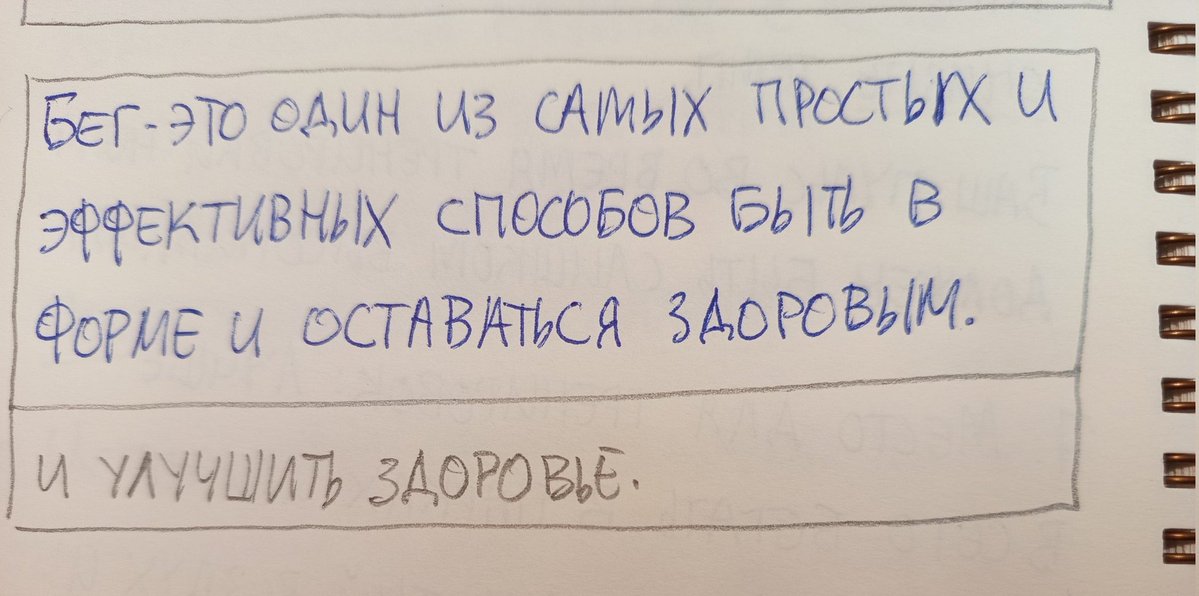 БЕГ-ЭТО ОДИН ИЗ САМЫХ ПРОСТЫХ И
ЭФФЕКТИВНЫХ СПОСОБОВ БЫТЬ В
ФОРМЕ И ОСТАВАТЬСЯ ЗДОРОВЫМ.
И УЛУЧШИТЬ ЗДОРОВЬЕ.